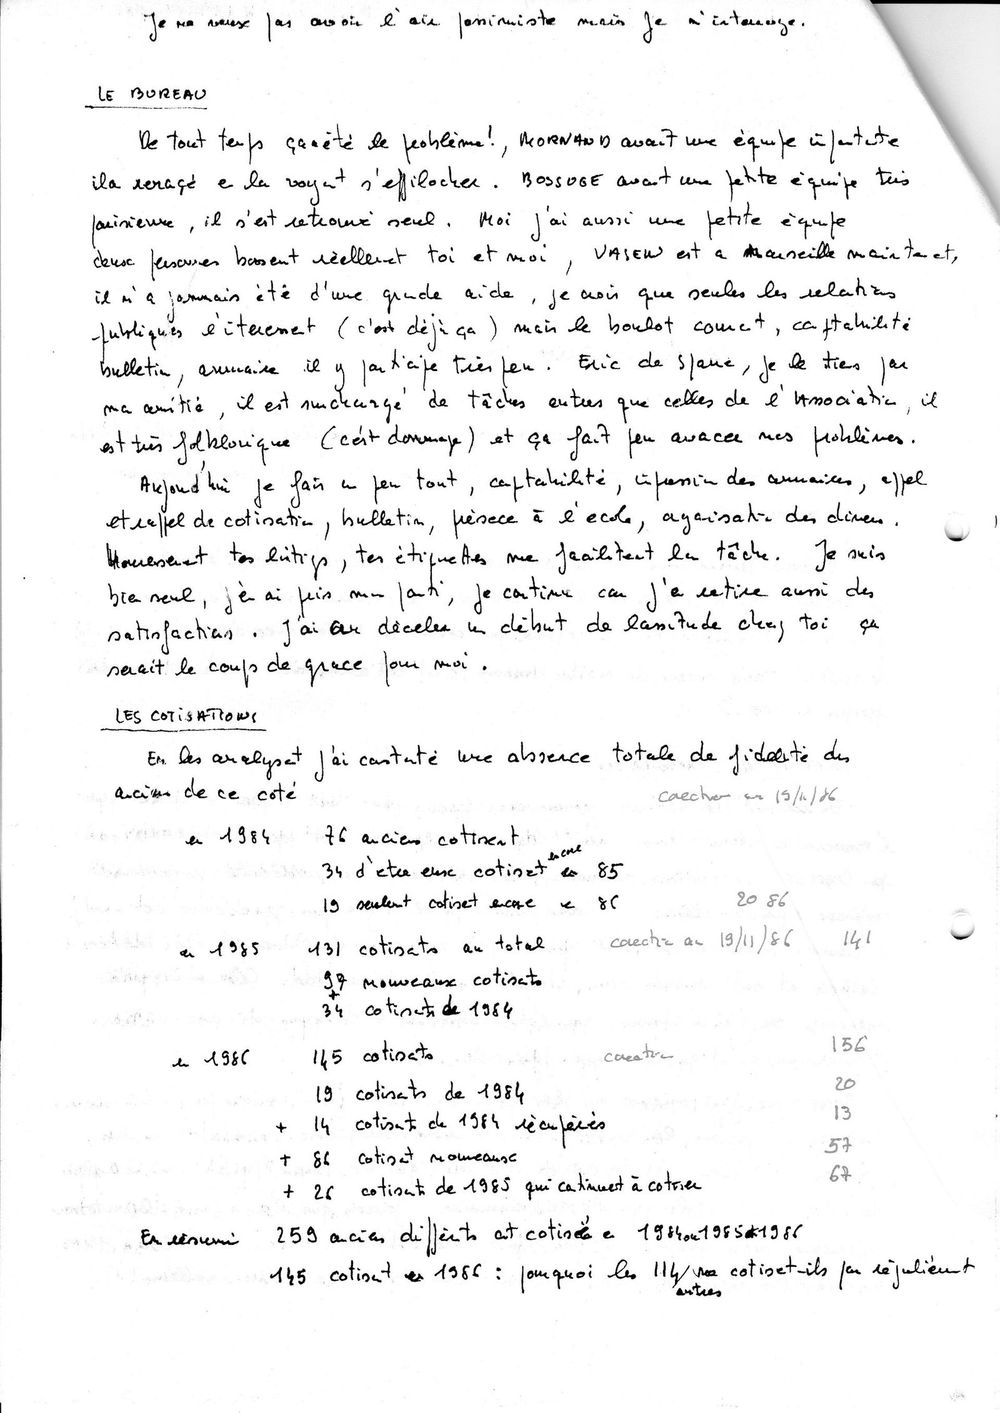 Je ne veux pas avoir l'air pessimiste mais je m'interroge.
LE BUREAU
De tout temps ça a été le problème!, MORNAND avait une équipe importante
il a ragé en la voyant s'effilocher. BOSSUGE avait une petite équipe très
parisienne, il s'est retrouvé seul. Moi j'ai aussi une petite équipe
deux personnes bossent réellement toi et moi, VASEW est a Marseille maintenant,
il n'a jammais été d'une grande aide, je crois que seules les relations
publiques l'interessent (c'est déjà ça) mais le boulot courant, comptabilité
bulletin, annuaire il y participe très peu. Eric de Spare, je le tiens par
ma amitié, il est surchargé de tâches autres que celles de l'Association, il
est très folklorique (c'est dommage) et ça fait peu avancer nos problèmes.
Aujourd'hui je fais un peu tout, comptabilité, impression des annuaires, appel
et rappel de cotisation, bulletin, présence à l'école, organisation des diners.
Heureusement tes listings, tes étiquettes me facilitent la tâche. Je suis
bien seul, j'en ai pris mon parti, je continue car j'en retire aussi des
satisfactions. J'ai cru déceler un début de lassitude chez toi ça
serait le coup de grace pour moi.
LES COTISATIONS
En les analysant j'ai constaté une absence totale de fidelité des
anciens de ce coté
correction au 19/11/86
en 1984 76 anciens cotisent
34 d'entre eux cotisent encore en 85
19 seulement cotisent encore en 86 20 86
en 1985 131 cotisants au total correction au 19/11/86 141
97 nouveaux cotisants
+
34 cotisants de 1984
en 1986 145 cotisants correction 156
19 cotisants de 1984 20
+ 14 cotisants de 1984 récupérés 13
+ 86 cotisant nouveaux 57
+ 26 cotisants de 1985 qui continuent à cotiser 67
En résumé 259 anciens différents ont cotisé en 1984 ou 1985 et 1986
145 cotisent en 1986 : pourquoi les 114 autres ne cotisent-ils pas régulièrement